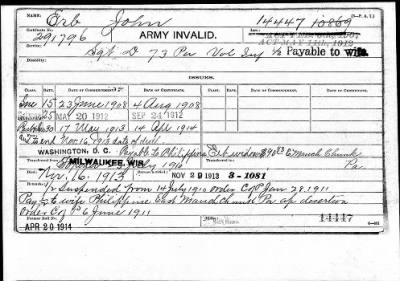 Name, Erb John 14447 10869
Certificate No. 291796 ARMY INVALID. ACT MAY 11th, 1912
Service, Sgt D 73 Pa Vol Inf ½ Payable to wife.
ISSUES.
CLASS. RATE. DATE OF COMMENCEMENT. DATE OF CERTIFICATE. CLASS. RATE. DATE OF COMMENCEMENT. DATE OF CERTIFICATE.
Inc 15 23 June 1908 4 Aug 1908
25 MAY 20 1912 SEP 24 1912
30 17 May 1913 14 Apl 1914
to end Nov 16 1913 date of death
WASHINGTON, D. C. Payable to Philippine Erb widow E Mauch Chunk
MILWAUKEE, WIS. Pa
Nov. 16. 1913 NOV 29 1913 3-1081
Suspended from 14 July 1910 Order Co P Jan 28. 1911
Pay ½ to wife Philippine East Mauch Chunk Pa a/c desertion
Order Co P 6 June 1911
APR 20 1914 14447